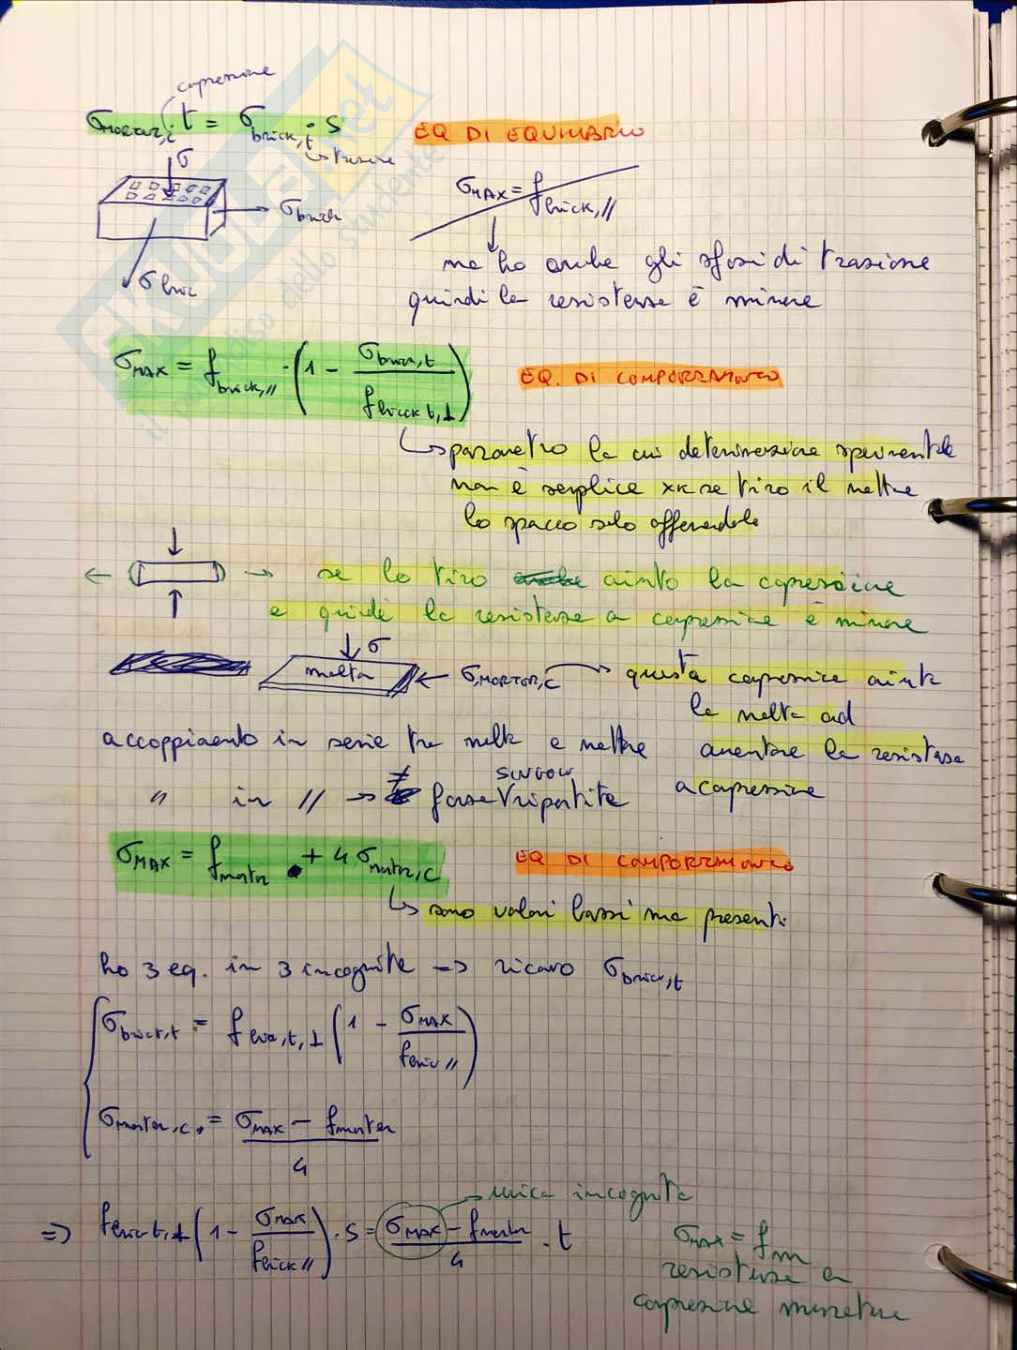 compressione
σmortar,c t = σbrick,t · s EQ DI EQUILIBRIO
trazione
σ
σbrick
σbric
σMAX = fbrick,//
ma ho anche gli sforzi di trazione
quindi la resistenza è minore
σMAX = fbrick,// · (1 - σbrick,t / fbrick t,⊥) EQ. DI COMPORTAMENTO
parametro la cui determinazione sperimentale
non è semplice xk se tiro il mattone
lo spacco solo afferrandolo
se lo tiro aiuto la compressione
e quindi la resistenza a compressione è minore
σ
malta σMORTAR,C questa compressione aiuta
la malta ad
accoppiamento in serie tra malta e mattone aumentare la resistenza
" in // → ≠ forze SINGOLE ripartite a compressione
σMAX = fmortar + 4 σmortar,c EQ DI COMPORTAMENTO
sono valori bassi ma presenti
ho 3 eq. in 3 incognite → ricavo σbrick,t
σbrick,t = fbric,t,⊥ (1 - σMAX / fbric //)
σmortar,c = (σMAX - fmortar) / 4
unica incognita
⇒ fbrick t,⊥ (1 - σMAX / fbrick //) · s = (σMAX - fmortar) / 4 · t
σmax = fm
resistenza a
compressione muratura